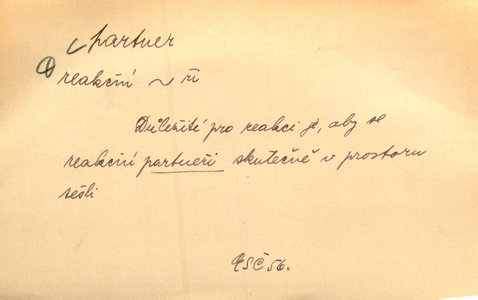 partner
reakční ~ ři
Důležité pro reakci je, aby se
reakční partneři skutečně v prostoru
sešli
56.